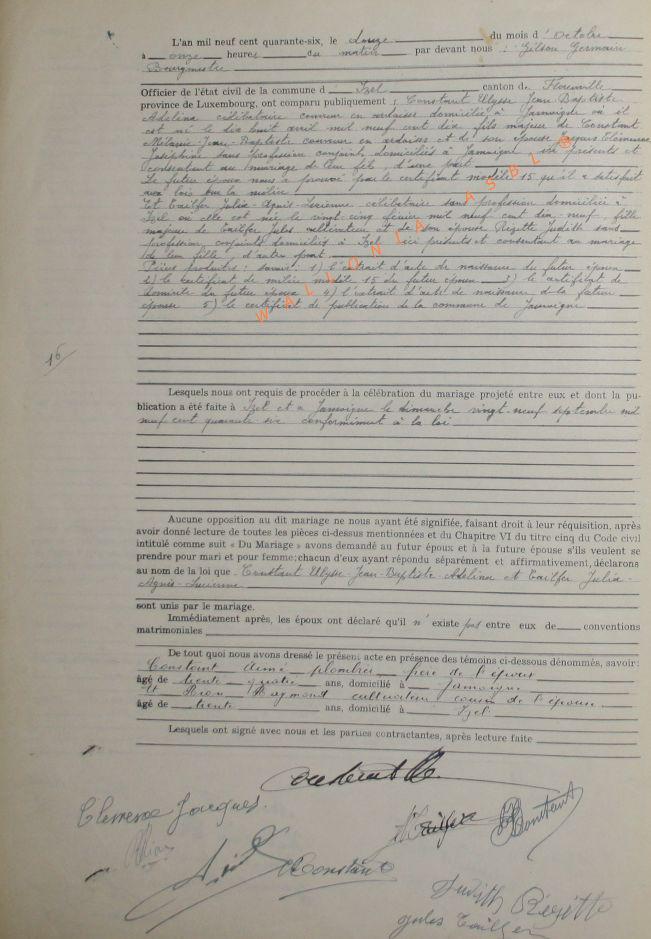 L'an mil neuf cent quarante-six, le douze du mois d'octobre
à onze heures du matin par devant nous : Gilson Germain
Bourgmestre
Officier de l'état civil de la commune d' Izel canton de Florenville
province de Luxembourg, ont comparu publiquement : Constant Ulysse Jean-Baptiste
Adelina célibataire couvreur en ardoises domicilié à Jamoigne où il
est né le dix huit avril mil neuf cent dix fils majeur de Constant
Jean-Baptiste couvreur en ardoises et de son épouse Jacques Clémence
Joséphine sans profession conjoints domiciliés à Jamoigne ici présents et
consentant au mariage de leur fils, d'une part.
Le futur époux nous a prouvé par le certificat modèle 15 qu'il a satisfait
aux lois sur la milice
Et Tailfer Julia-Agnès-Lucienne célibataire sans profession domiciliée à
Izel où elle est née le vingt-cinq février mil neuf cent dix-neuf, fille
majeure de Tailfer Jules cultivateur et de son épouse Rigotte Judith sans
profession conjoints domiciliés à Izel ici présents et consentant au mariage
de leur fille, d'autre part.
Pièces produites : savoir : 1) l'extrait d'acte de naissance du futur époux
2) le certificat de milice modèle 15 du futur époux 3) le certificat de
domicile du futur époux 4) l'extrait d'acte de naissance de la future
épouse 5) le certificat de publication de la commune de Jamoigne
WALLONIA ASBL ®
16
Lesquels nous ont requis de procéder à la célébration du mariage projeté entre eux et dont la pu-
blication a été faite à Izel et à Jamoigne le dimanche vingt-neuf septembre mil
neuf cent quarante-six conformément à la loi
Aucune opposition au dit mariage ne nous ayant été signifiée, faisant droit à leur réquisition, après
avoir donné lecture de toutes les pièces ci-dessus mentionnées et du Chapitre VI du titre cinq du Code civil
intitulé comme suit « Du Mariage » avons demandé au futur époux et à la future épouse s'ils veulent se
prendre pour mari et pour femme; chacun d'eux ayant répondu séparément et affirmativement, déclarons
au nom de la loi que Constant Ulysse-Jean-Baptiste-Adelina et Tailfer Julia-
Agnès-Lucienne
sont unis par le mariage.
Immédiatement après, les époux ont déclaré qu'il n'existe pas entre eux de conventions
matrimoniales
De tout quoi nous avons dressé le présent acte en présence des témoins ci-dessous dénommés, savoir:
Constant Aimé plombier frère de l'époux
âgé de trente-quatre ans, domicilié à Jamoigne
Et Raymond cultivateur cousin de l'épouse
âgé de trente ans, domicilié à Izel
Lesquels ont signé avec nous et les parties contractantes, après lecture faite
Clémence Jacques.
JTailfer
Constant
Constant
Judith Rigotte
Jules Tailfer